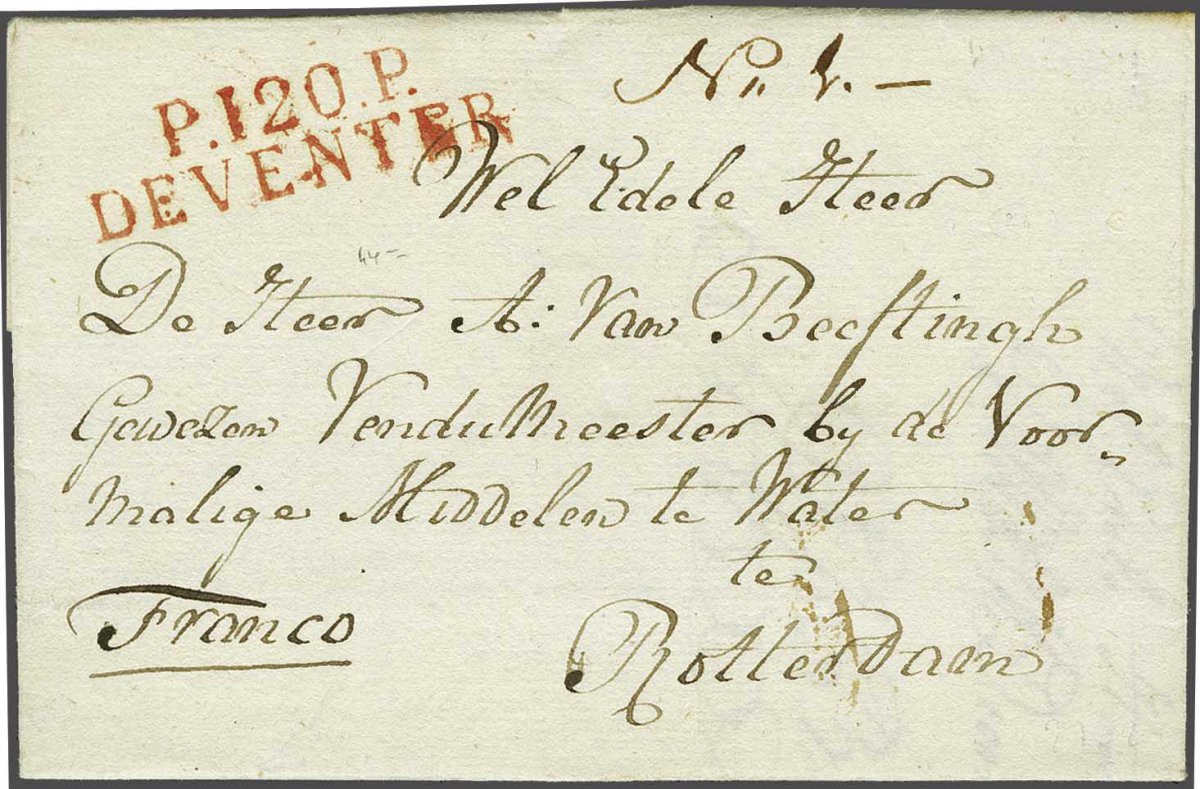 P.120.P.
DEVENTER
No. 1. —
Wel Edele Heer
44-
De Heer A: Van Beeftingh
Gewezen Vendu Meester by de Voor„
malige Middelen te Water
te
Franco
Rotterdam